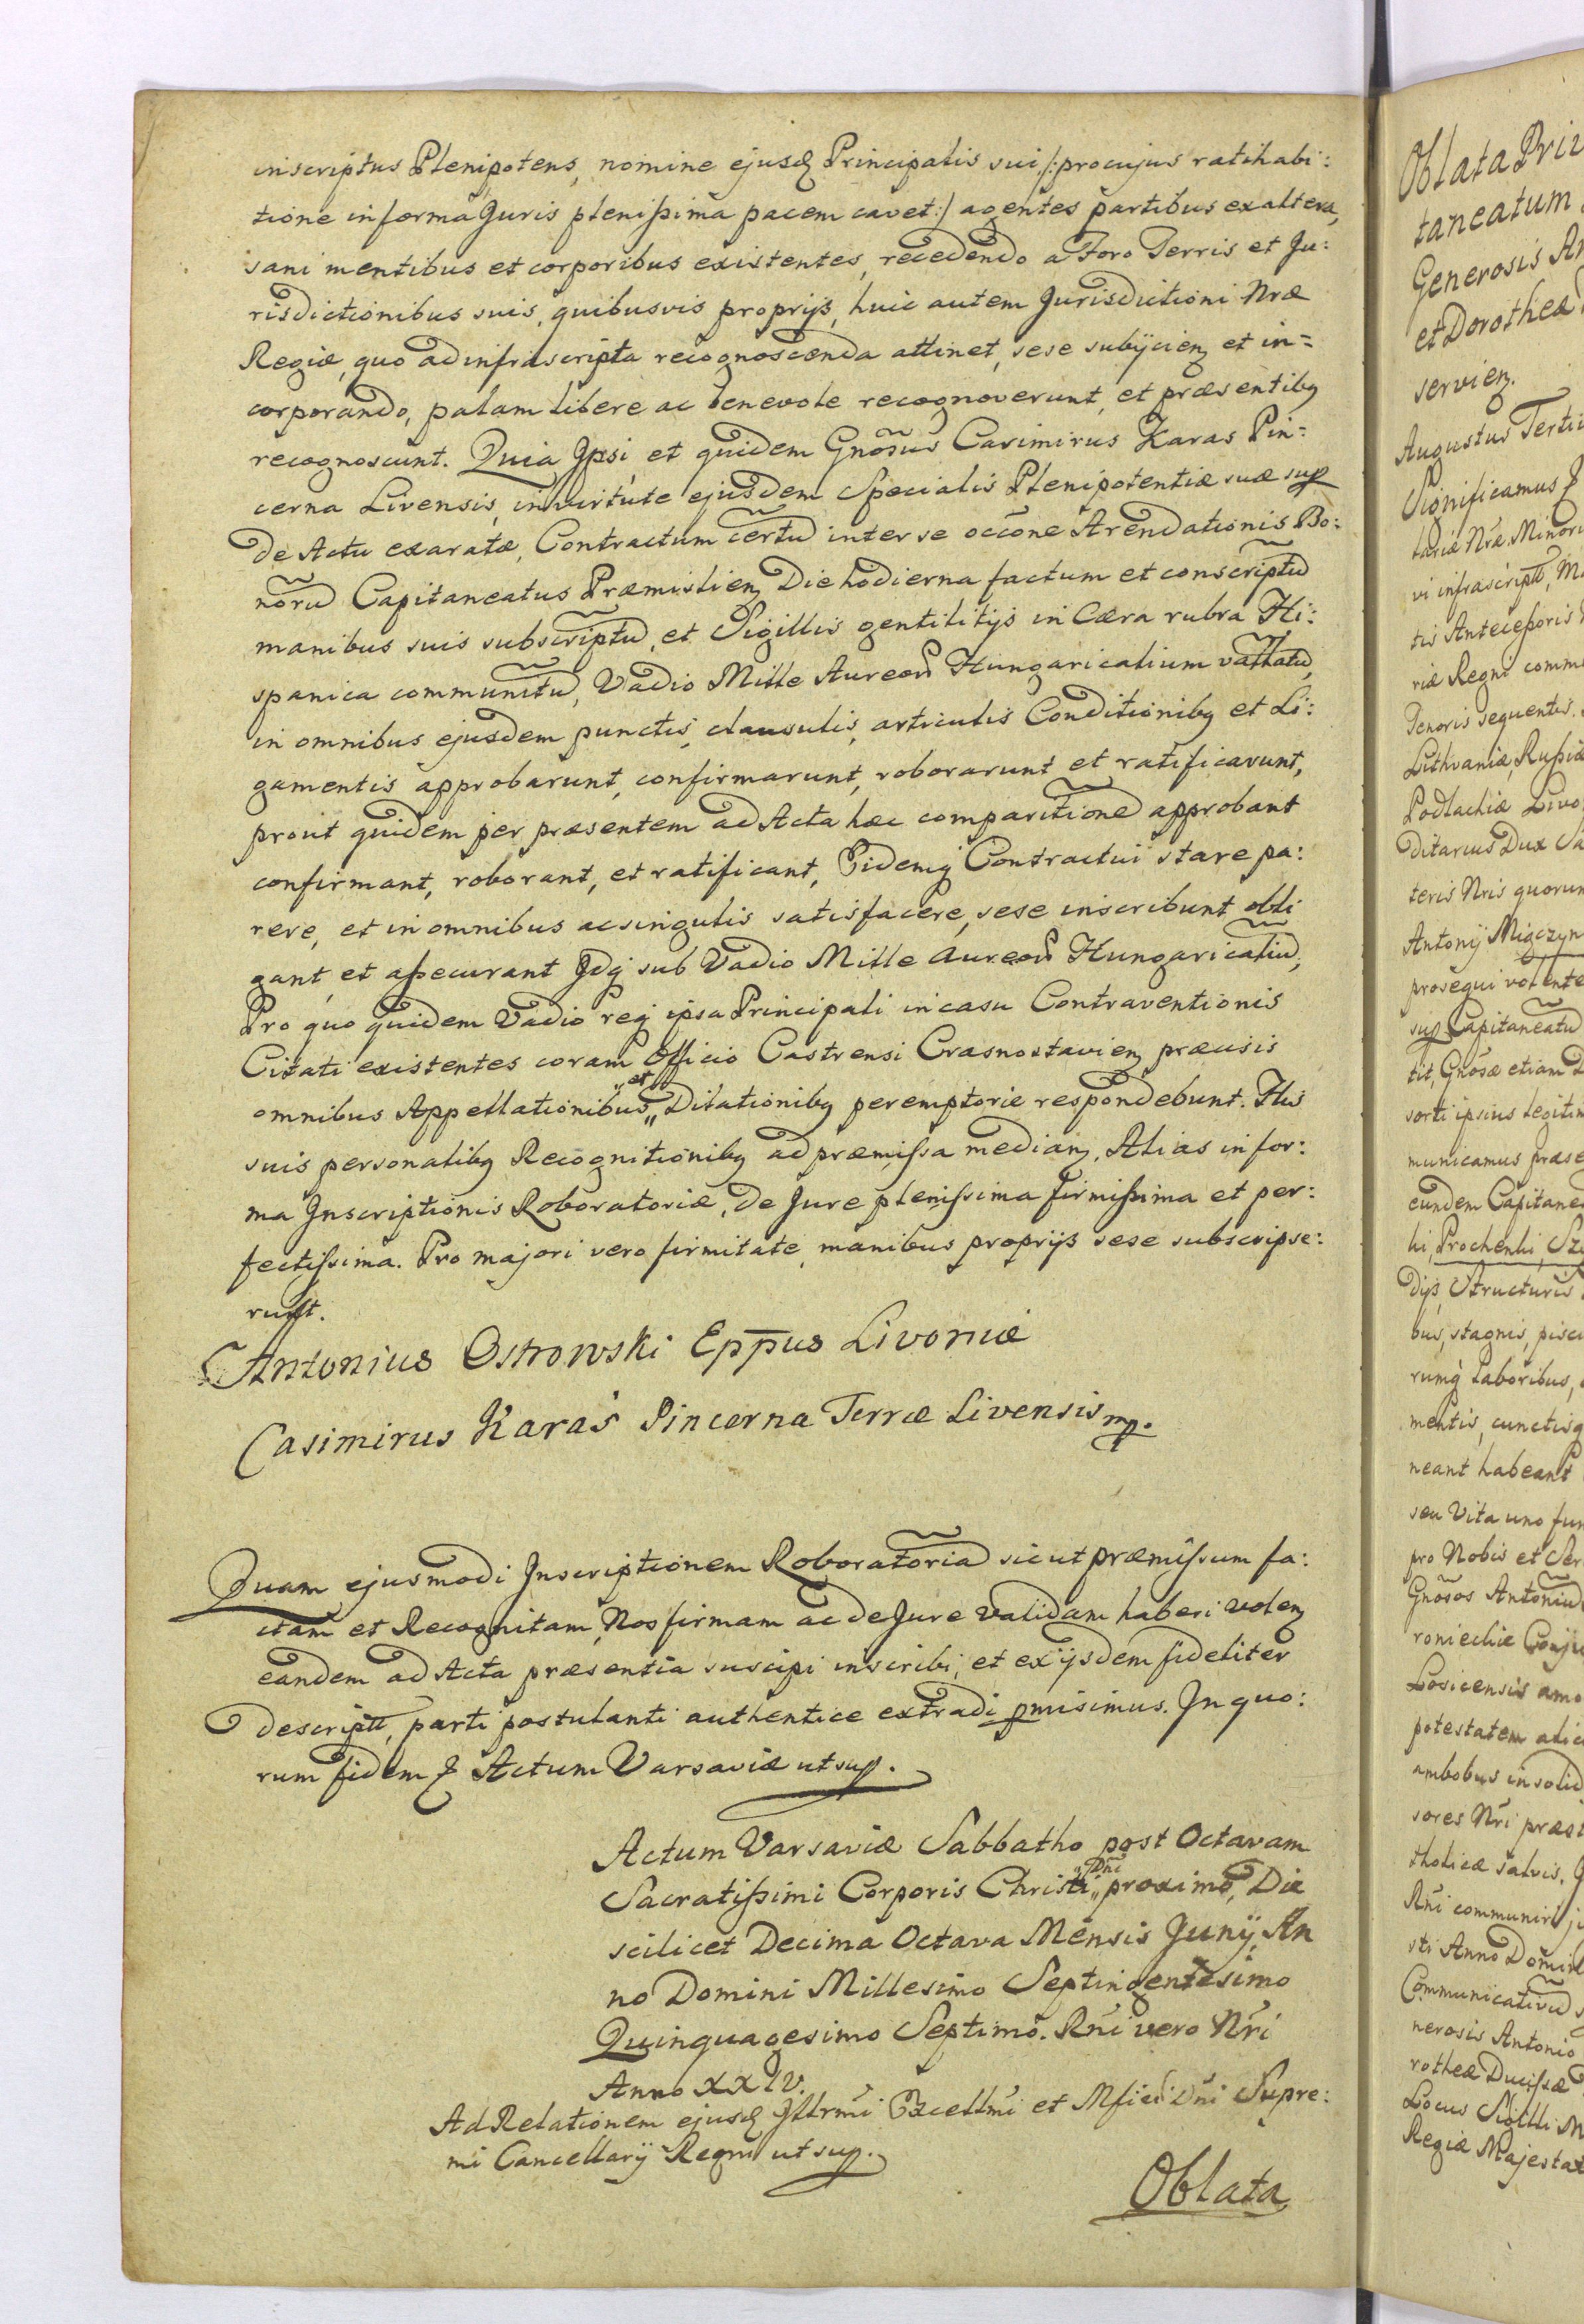 inscriptus Plenipotens, nomine ejusd Principalis sui /: pro cujus ratihabi:
tione in forma Juris plenissima pacem cavet :/ agentes partibus ex altera,
sani mentibus et corporibus existentes, recedendo a Foro Terris et Ju:
risdictionibus suis, quibusvis proprijs, huic autem Jurisdictioni Nræ
Regiæ, quo ad infrascripta recognoscenda attinet, sese subijcien et in=
corporando, palam libere ac benevole recognoverunt, et præsentibq
recognoscunt. Quia Ipsi, et quidem Gnõsus Casimirus Karas Pin=
cerna Livensis, in virtute ejusdem Specialis Plenipotentiæ suæ sup
de Actu exaratæ, Contractum certũ inter se occõne Arendationis Bo:
norũ Capitaneatus Præmislien Die hodierna factum et conscriptũ
manibus suis subscriptũ, et Sigillis gentilitijs in Cæra rubra Hi:
spanica communitũ, Vadio Mille Aureor Hungaricalium vallatũ,
in omnibus ejusdem punctis, clausulis, articulis Conditionibq et Li:
gamentis approbarunt, confirmarunt, roborarunt et ratificarunt,
prout quidem per præsentem ad Acta hæc comparitionẽ approbant
confirmant, roborant, et ratificant, Eidemq Contractui stare pa:
rere, et in omnibus ac singulis satisfacere, sese inscribunt obli
gant, et assecurant Idq sub Vadio Mille aureor Hungaricaliũ,
Pro quo quidem Vadio req ipsa Principali in casu Contraventionis
Citati existentes coram Officio Castrensi Crasnostavien præcisis
omnibus Appellationibus „et„ Dilationibq peremptorie respondebunt. His
suis personalibq Recognitionibq ad præmissa median. Alias in for:
ma Inscriptionis Roboratoriæ, de Jure plenissima firmissima et per:
fectissima. Pro majori vero firmitate, manibus proprijs sese subscripse:
runt.
Antonius Ostrowski Epp̄us Livoniæ
Casimirus Karaś Pincerna Terræ Livensis mp.
Quam ejusmodi Inscriptionem Roboratoriã sicut præmissum fa:
ctam et Recognitam, Nos firmam ac de Jure validam haberi volen
eandem ad Acta præsentia suscipi inscribi, et ex ijsdem fideliter
descriptt, parti postulanti authentice extradi pmisimus. In quo:
rum fidem & Actum Varsaviæ ut sup.
Actum Varsaviæ Sabbatho post Octavam
Sacratissimi Corporis Christi „Dni„ proximo, Die
scilicet Decima Octava Mensis Junij, An
no Domini Millesimo Septingentesimo
Quinquagesimo Septimo. Rñi vero Nri
Anno XXIV.
Ad Relationem ejusd Illrmi Excellmi et Mfici Dni Supre:
mi Cancellarij Regni ut sup.
Oblata
Oblata Priv
taneatum
Generosis An
et Dorotheæ
servien.
Augustus Terti
Significamus &
tariæ Nræ Minori
vi infrascriptt, M
tis Antecessoris
riæ Regni comm
Tenoris sequentis.
Lithvaniæ, Russiæ
Podlachiæ Livo
ditarius Dux Sa
teris Nris quorum
Antonij Miączyn
prosequi volente
sup Capitaneatũ
tit, Gnõsæ etiam D
sorti ipsius legitim
municamus præse
eundem Capitanea
ki, Prochenki, Sz
dijs, Structuris
bus, stagnis, pisci
rumq laboribus,
mentis, cunctisq
neant habeant
seu Vita uno fun
pro Nobis et Ser
Gnõsos Antoniũ
ronieckie Conju
Losicensis amo
potestatem alic
ambobus in solid
sores Nri præst
tholicæ salvis.
Rñi communiri j
sti Anno Domini
Communicativũ s
nerosis Antonio
rotheæ Ducissæ
Locus Sigilli M
Regiæ Majestat